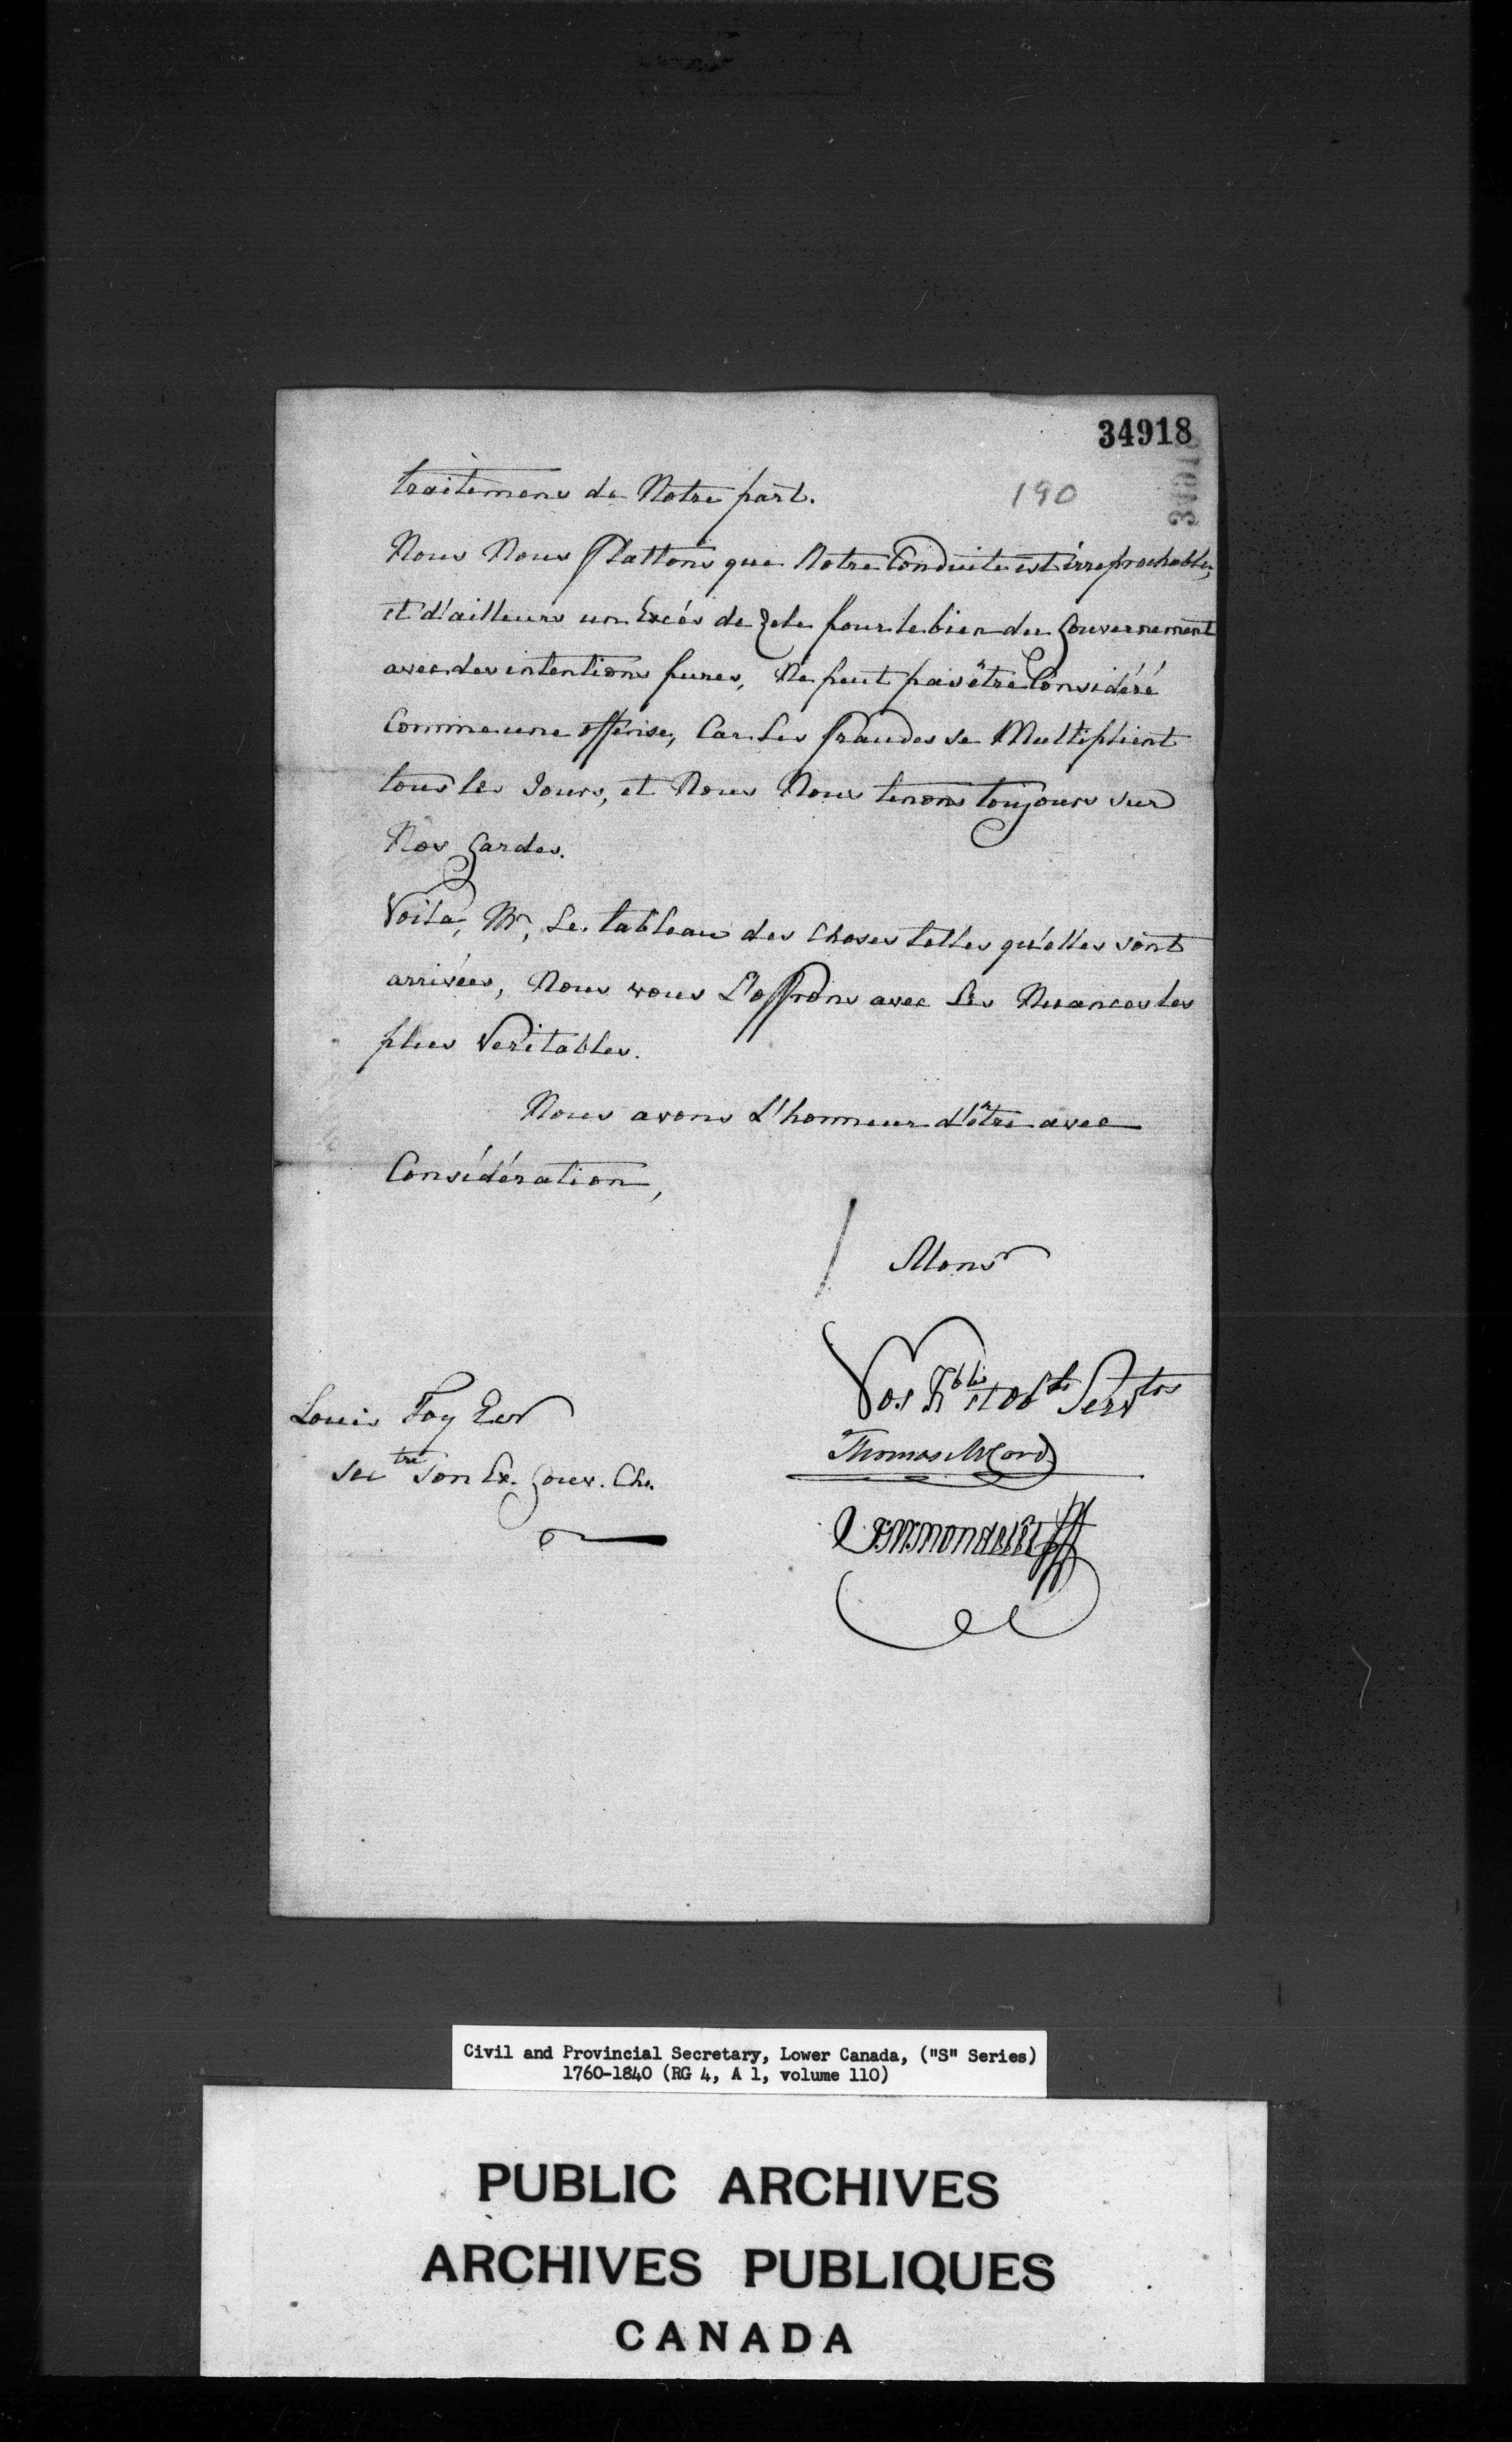 34918
190
traitemens de Notre part.
Nous Nous flattons que Notre Conduite est irreprochable,
et d'ailleurs un Excés de Zele pour le bien du Gouvernement
avec des intentions pures, Ne peut pas être Considéré
Comme une offense, Car Les fraudes se Multiplient
tous les Jours, et Nous Nous tenons toujours sur
Nos Gardes.
Voila, Mr, Le tableau des Choses telles qu'elles sont
arrivées, Nous vous L'offrons avec Les Nuances les
plus Veritables.
Nous avons L'honneur d'être avec
Considération,
Monsr
Vos Hbles et Obts Servtes
Thomas McCord
JMMondelet
Louis Foy Ecr
Sectre Son Ex. Gouv. Ch.
Civil and Provincial Secretary, Lower Canada, ("S" Series)
1760-1840 (RG 4, A 1, volume 110)
PUBLIC ARCHIVES
ARCHIVES PUBLIQUES
CANADA